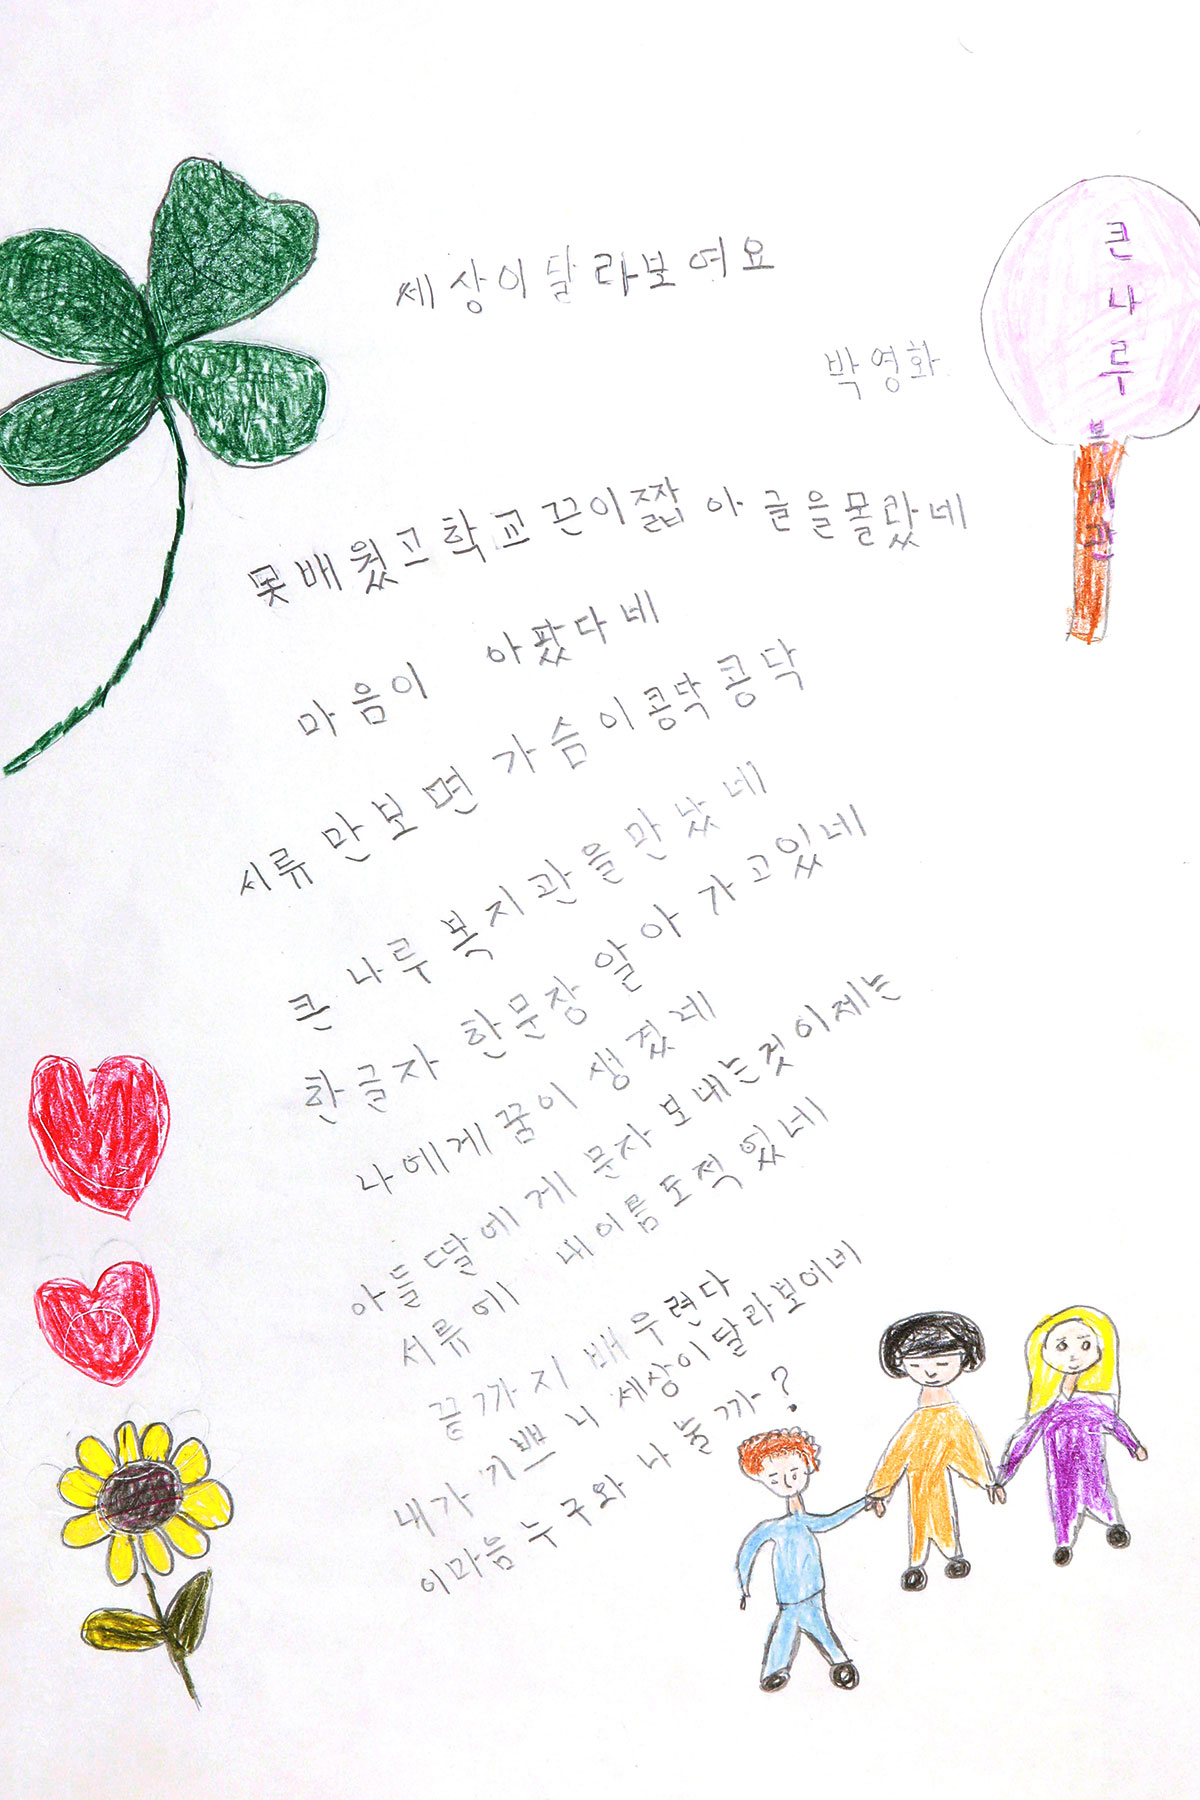 세상이달라보여요
박영화
큰나루복지관
못배웠고학교끈이짧아 글을몰랐네
마음이 아팠다네
서류만보면 가슴이콩닥콩닥
큰나루복지관을만났네
한글자 한문장 알아가고있네
나에게꿈이 생겼네
아들딸에게 문자보내는것이제는
서류에 내이름도적었네
끝까지 배우련다
내가기쁘니 세상이달라보이네
이마음누구와나눌까?